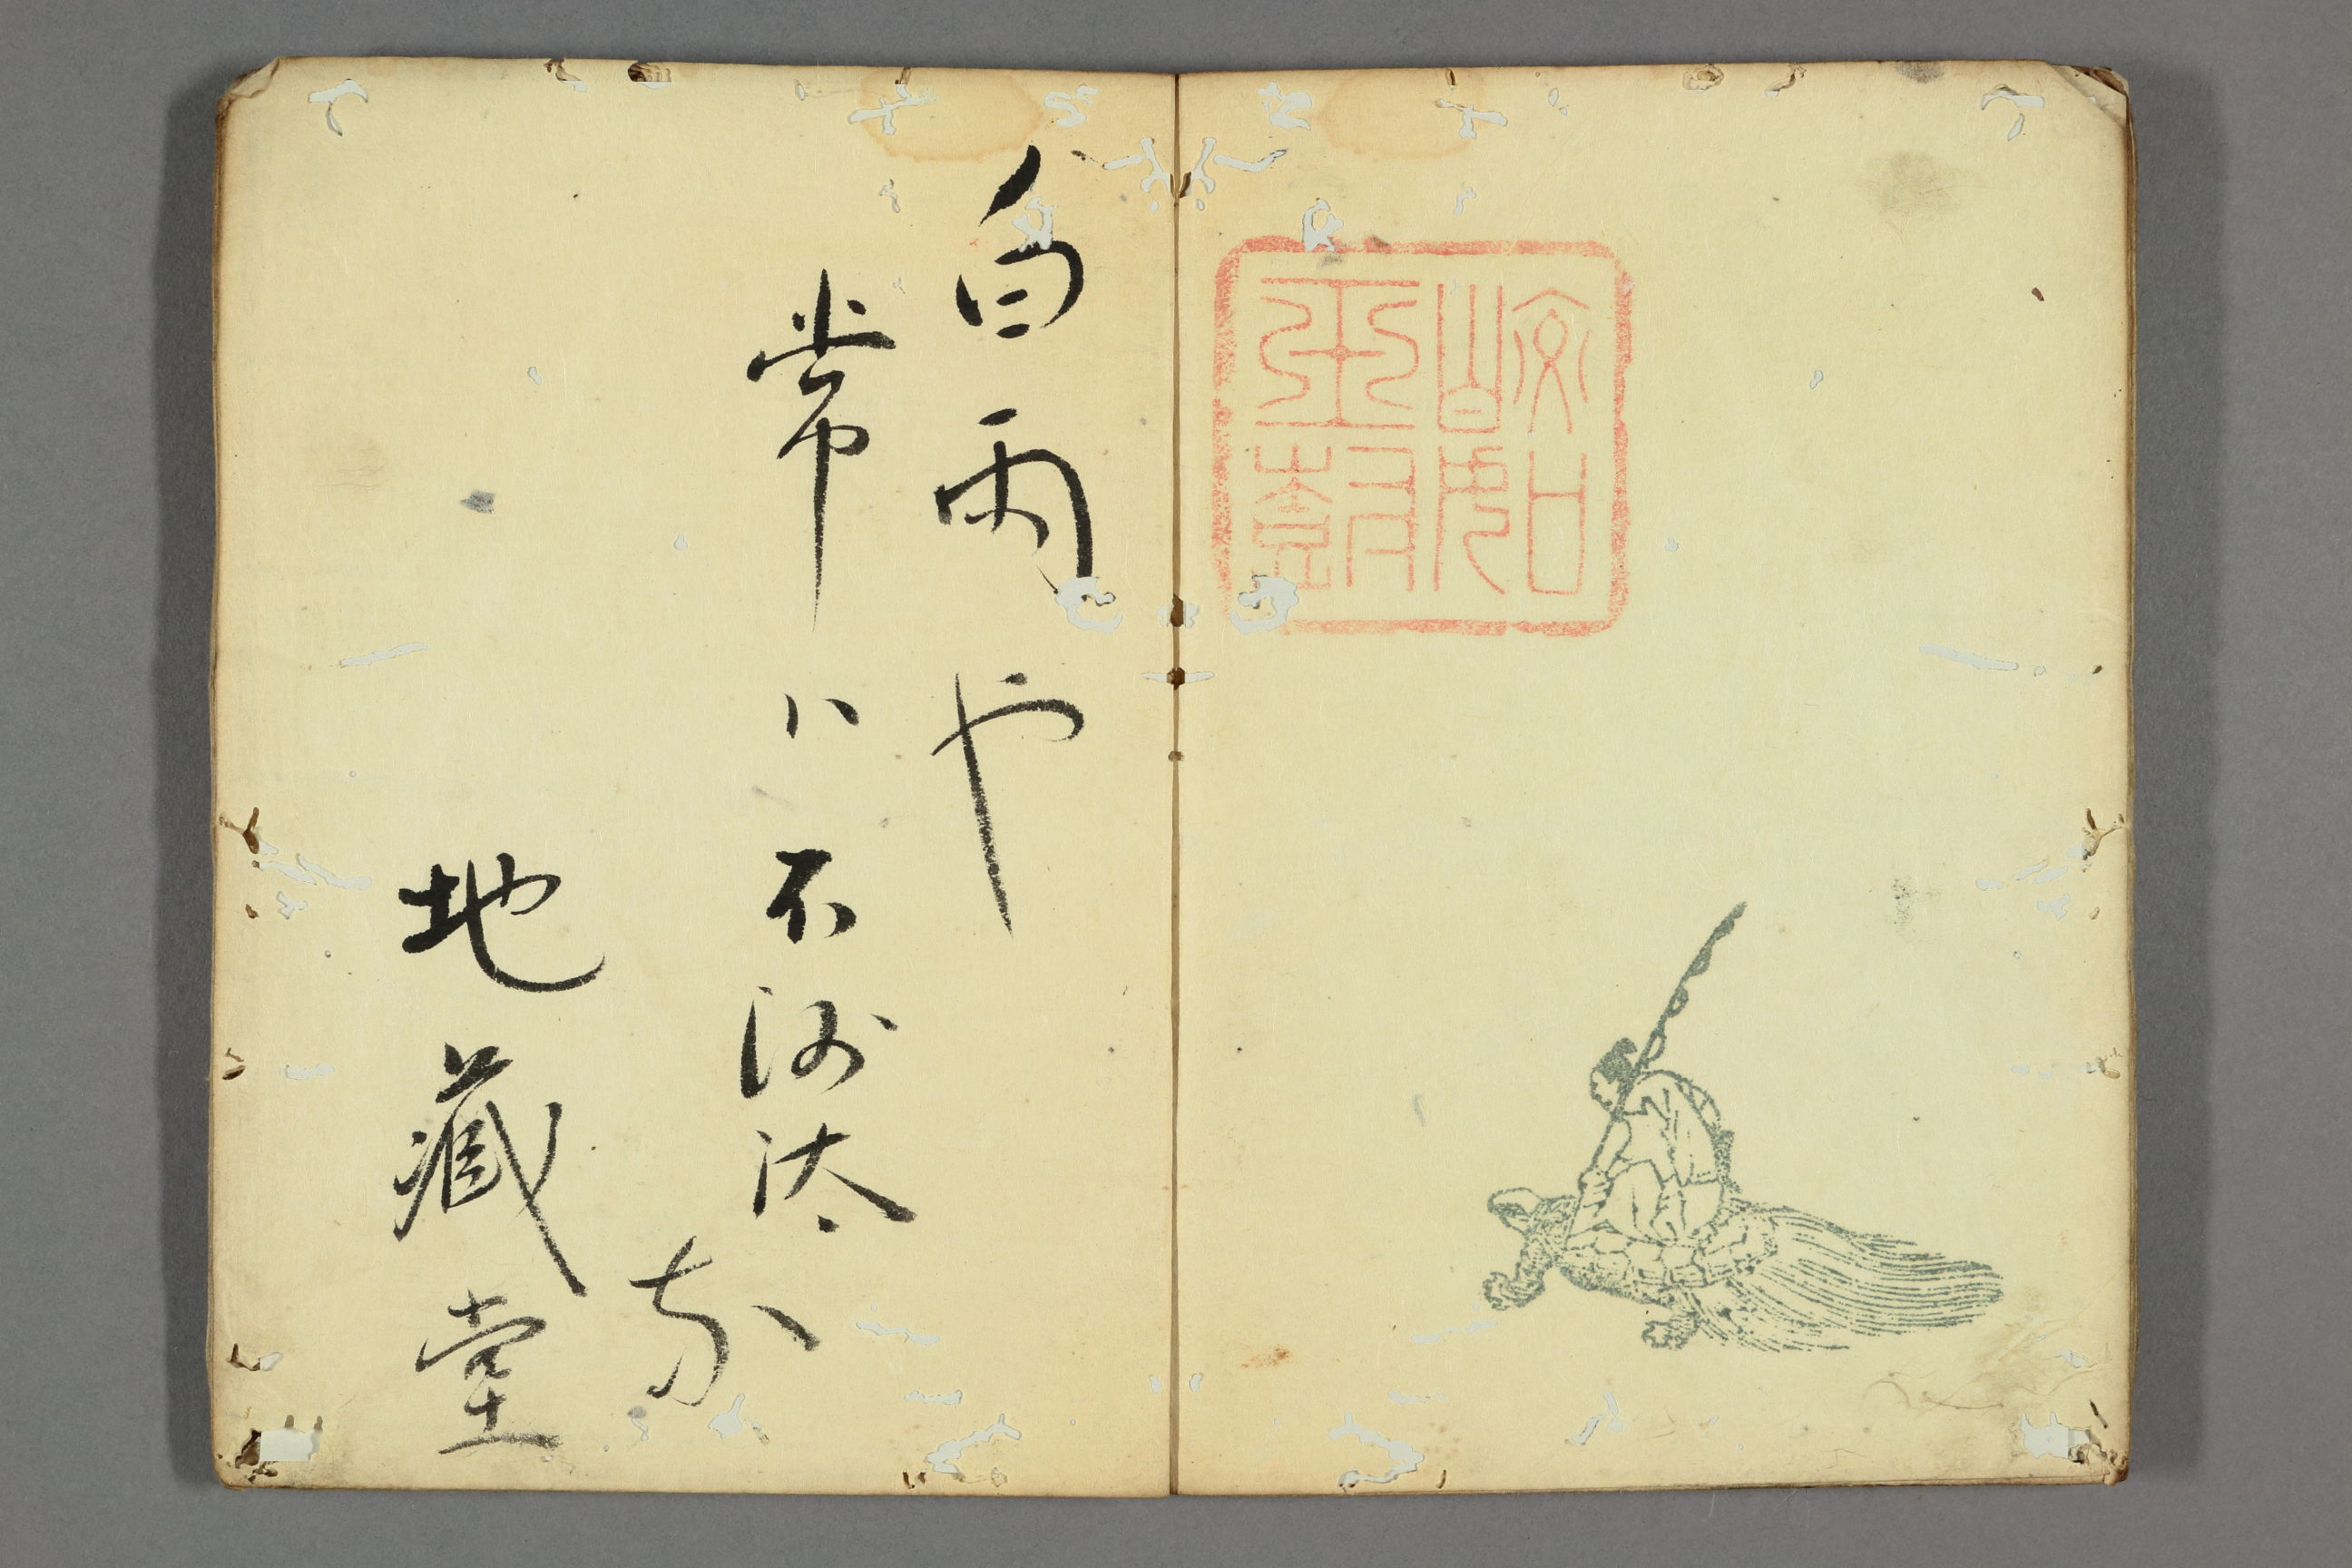 白雨や
常ハ不沙汰
な
地藏堂